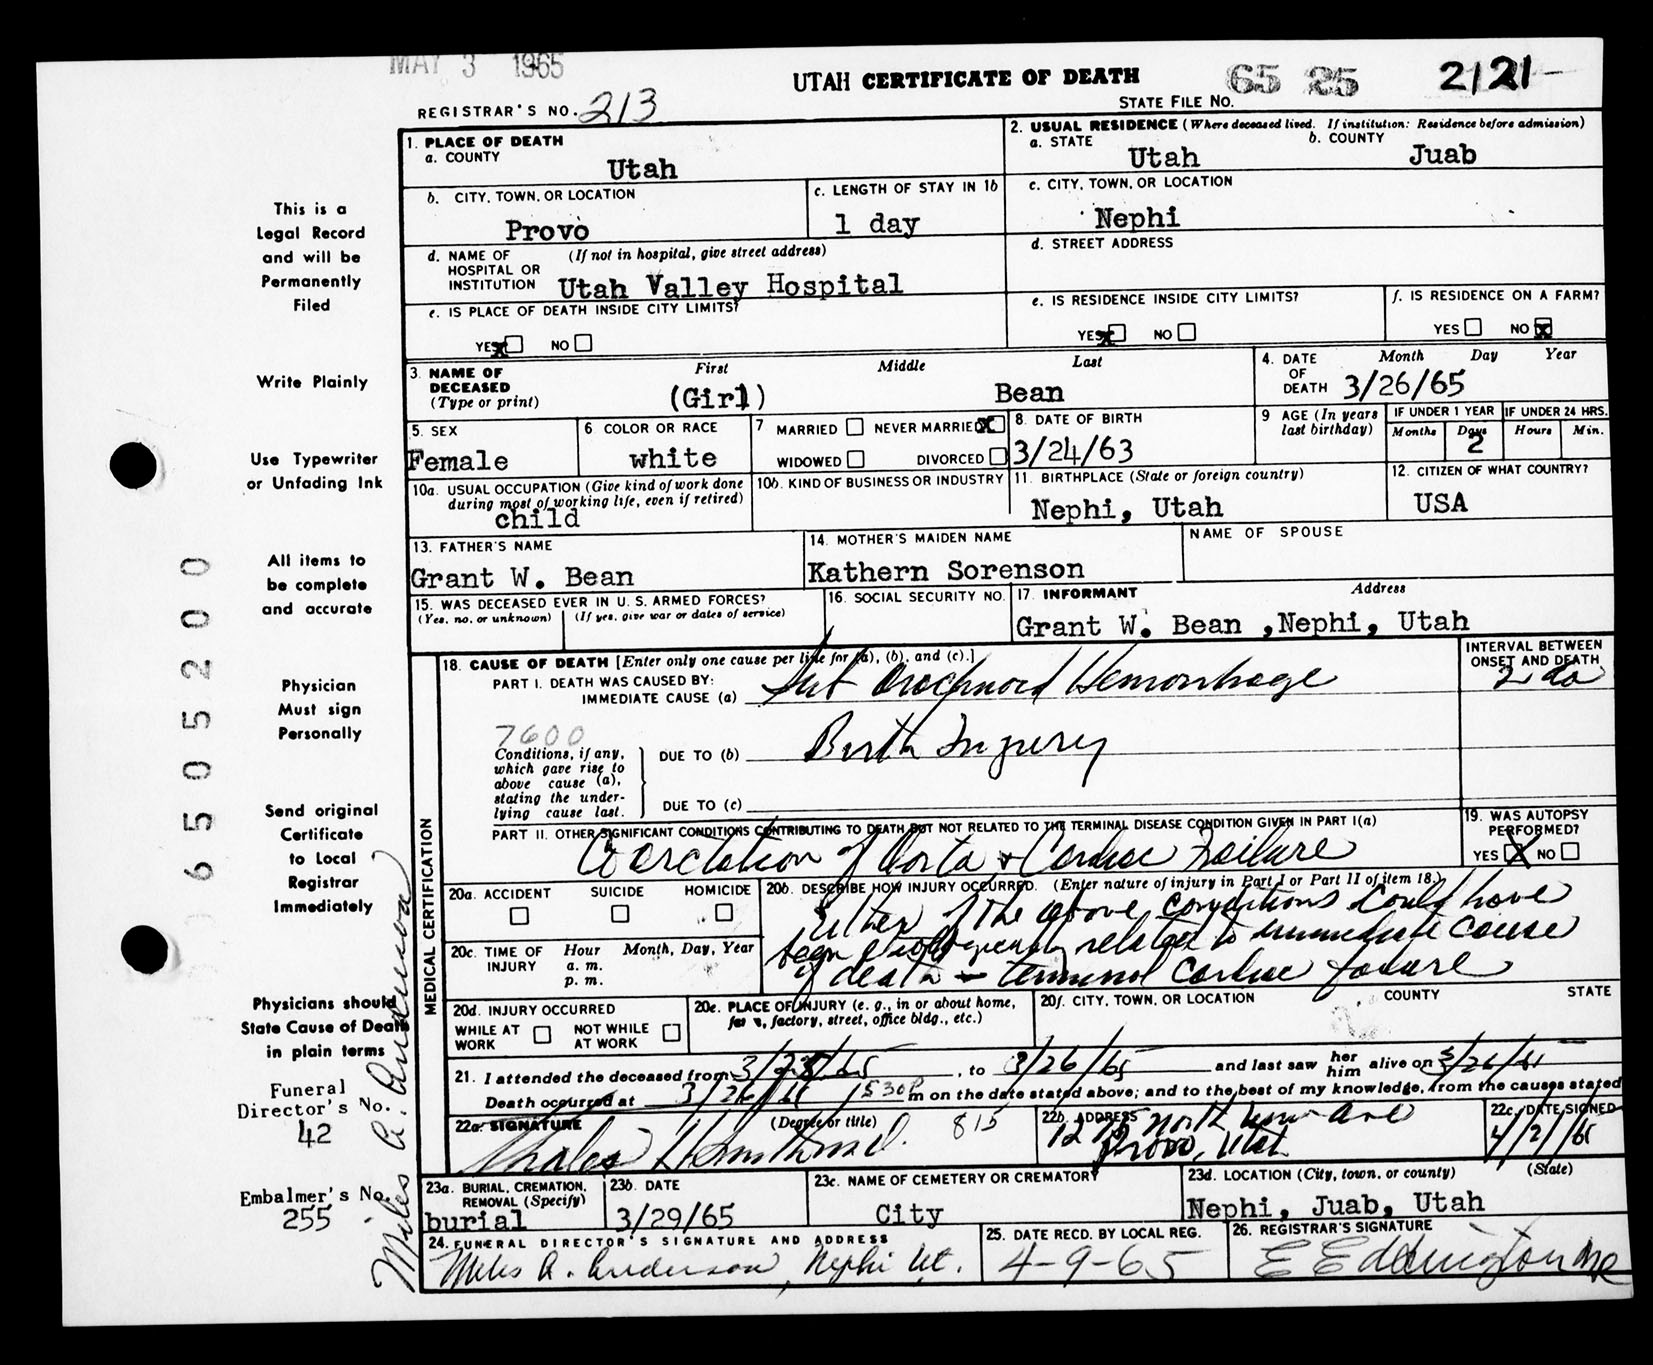 MAY 3 1965
UTAH CERTIFICATE OF DEATH
65 25 2121
REGISTRAR'S NO. 213
STATE FILE NO.
1. PLACE OF DEATH
a. COUNTY
Utah
2. USUAL RESIDENCE (Where deceased lived. If institution: Residence before admission)
a. STATE Utah b. COUNTY Juab
b. CITY, TOWN, OR LOCATION
Provo
c. LENGTH OF STAY IN 1b
1 day
c. CITY, TOWN, OR LOCATION
Nephi
d. NAME OF HOSPITAL OR INSTITUTION (If not in hospital, give street address)
Utah Valley Hospital
d. STREET ADDRESS
e. IS PLACE OF DEATH INSIDE CITY LIMITS?
YES X NO
e. IS RESIDENCE INSIDE CITY LIMITS?
YES X NO
f. IS RESIDENCE ON A FARM?
YES NO X
3. NAME OF DECEASED (Type or print)
First Middle Last
(Girl) Bean
4. DATE OF DEATH Month Day Year
3/26/65
5. SEX
Female
6 COLOR OR RACE
white
7 MARRIED NEVER MARRIED X
WIDOWED DIVORCED
8. DATE OF BIRTH
3/24/63
9 AGE (In years last birthday)
IF UNDER 1 YEAR
Months Days
2
IF UNDER 24 HRS.
Hours Min.
10a. USUAL OCCUPATION (Give kind of work done during most of working life, even if retired)
child
10b. KIND OF BUSINESS OR INDUSTRY
11. BIRTHPLACE (State or foreign country)
Nephi, Utah
12. CITIZEN OF WHAT COUNTRY?
USA
13. FATHER'S NAME
Grant W. Bean
14. MOTHER'S MAIDEN NAME
Kathern Sorenson
NAME OF SPOUSE
15. WAS DECEASED EVER IN U.S. ARMED FORCES?
(Yes, no, or unknown) (If yes, give war or dates of service)
16. SOCIAL SECURITY NO.
17. INFORMANT Address
Grant W. Bean ,Nephi, Utah
MEDICAL CERTIFICATION
18. CAUSE OF DEATH [Enter only one cause per line for (a), (b), and (c).]
PART I. DEATH WAS CAUSED BY:
IMMEDIATE CAUSE (a) Sub Arachnoid Hemorrhage
INTERVAL BETWEEN ONSET AND DEATH
2 da
7600
Conditions, if any, which gave rise to above cause (a), stating the underlying cause last.
DUE TO (b) Birth Injury
DUE TO (c)
PART II. OTHER SIGNIFICANT CONDITIONS CONTRIBUTING TO DEATH BUT NOT RELATED TO THE TERMINAL DISEASE CONDITION GIVEN IN PART I(a)
Coarctation of Aorta & Cardiac Failure
19. WAS AUTOPSY PERFORMED?
YES X NO
20a. ACCIDENT SUICIDE HOMICIDE
20b. DESCRIBE HOW INJURY OCCURRED. (Enter nature of injury in Part I or Part II of item 18.)
Either of the above conditions could have
been related to immediate cause
of death - terminal cardiac failure
20c. TIME OF INJURY Hour Month, Day, Year
a. m.
p. m.
20d. INJURY OCCURRED
WHILE AT WORK NOT WHILE AT WORK
20e. PLACE OF INJURY (e. g., in or about home, farm, factory, street, office bldg., etc.)
20f. CITY, TOWN, OR LOCATION COUNTY STATE
21. I attended the deceased from 3/25/65, to 3/26/65 and last saw her him alive on 3/26/65
Death occurred at 3/26/65 530P m on the date stated above; and to the best of my knowledge, from the causes stated
22a. SIGNATURE (Degree or title)
Thales H. Smith M.D. 815
22b. ADDRESS
North Univ Ave
Provo, Utah
22c. DATE SIGNED
4/2/65
23a. BURIAL, CREMATION, REMOVAL (Specify)
burial
23b. DATE
3/29/65
23c. NAME OF CEMETERY OR CREMATORY
City
23d. LOCATION (City, town, or county) (State)
Nephi, Juab, Utah
24. FUNERAL DIRECTOR'S SIGNATURE AND ADDRESS
Miles A. Anderson, Nephi Ut.
25. DATE RECD. BY LOCAL REG.
4-9-65
26. REGISTRAR'S SIGNATURE
E Eddington
This is a
Legal Record
and will be
Permanently
Filed
Write Plainly
Use Typewriter
or Unfading Ink
All items to
be complete
and accurate
Physician
Must sign
Personally
Send original
Certificate
to Local
Registrar
Immediately
Physicians should
State Cause of Death
in plain terms
Funeral
Director's No.
42
Embalmer's No.
255
Miles A. Anderson
0650 5200